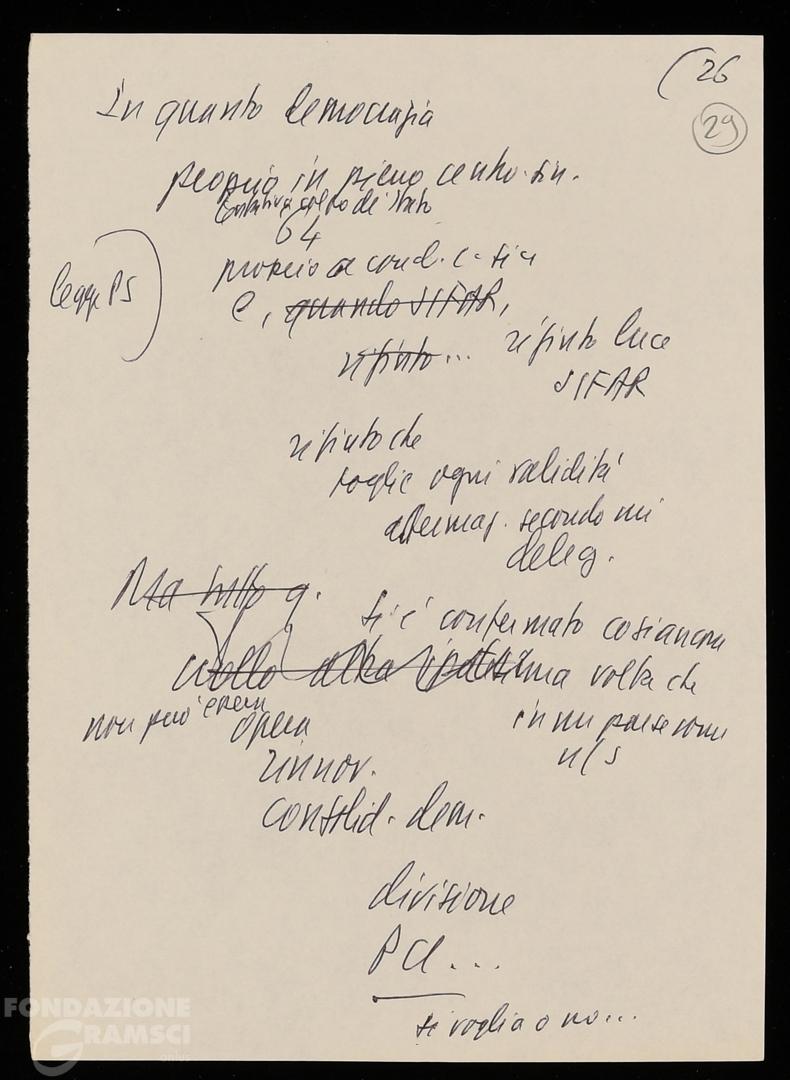 (26
29
In quanto democrazia
proprio in pieno centro-sin.
tentativo colpo di Stato
64
proprio a cond. c-sin
legge PS)
e, quando SIFAR,
rifiuto... rifiuto luce
SIFAR
rifiuto che
toglie ogni validità
affermaz. secondo cui
deleg.
Ma tutto q.
si è confermato così ancora
nello una volta che
non può esservi in un paese come
opera n/s
rinnov.
consolid. dem.
divisione
PCI...
si voglia o no...
FONDAZIONE
GRAMSCI
onlus